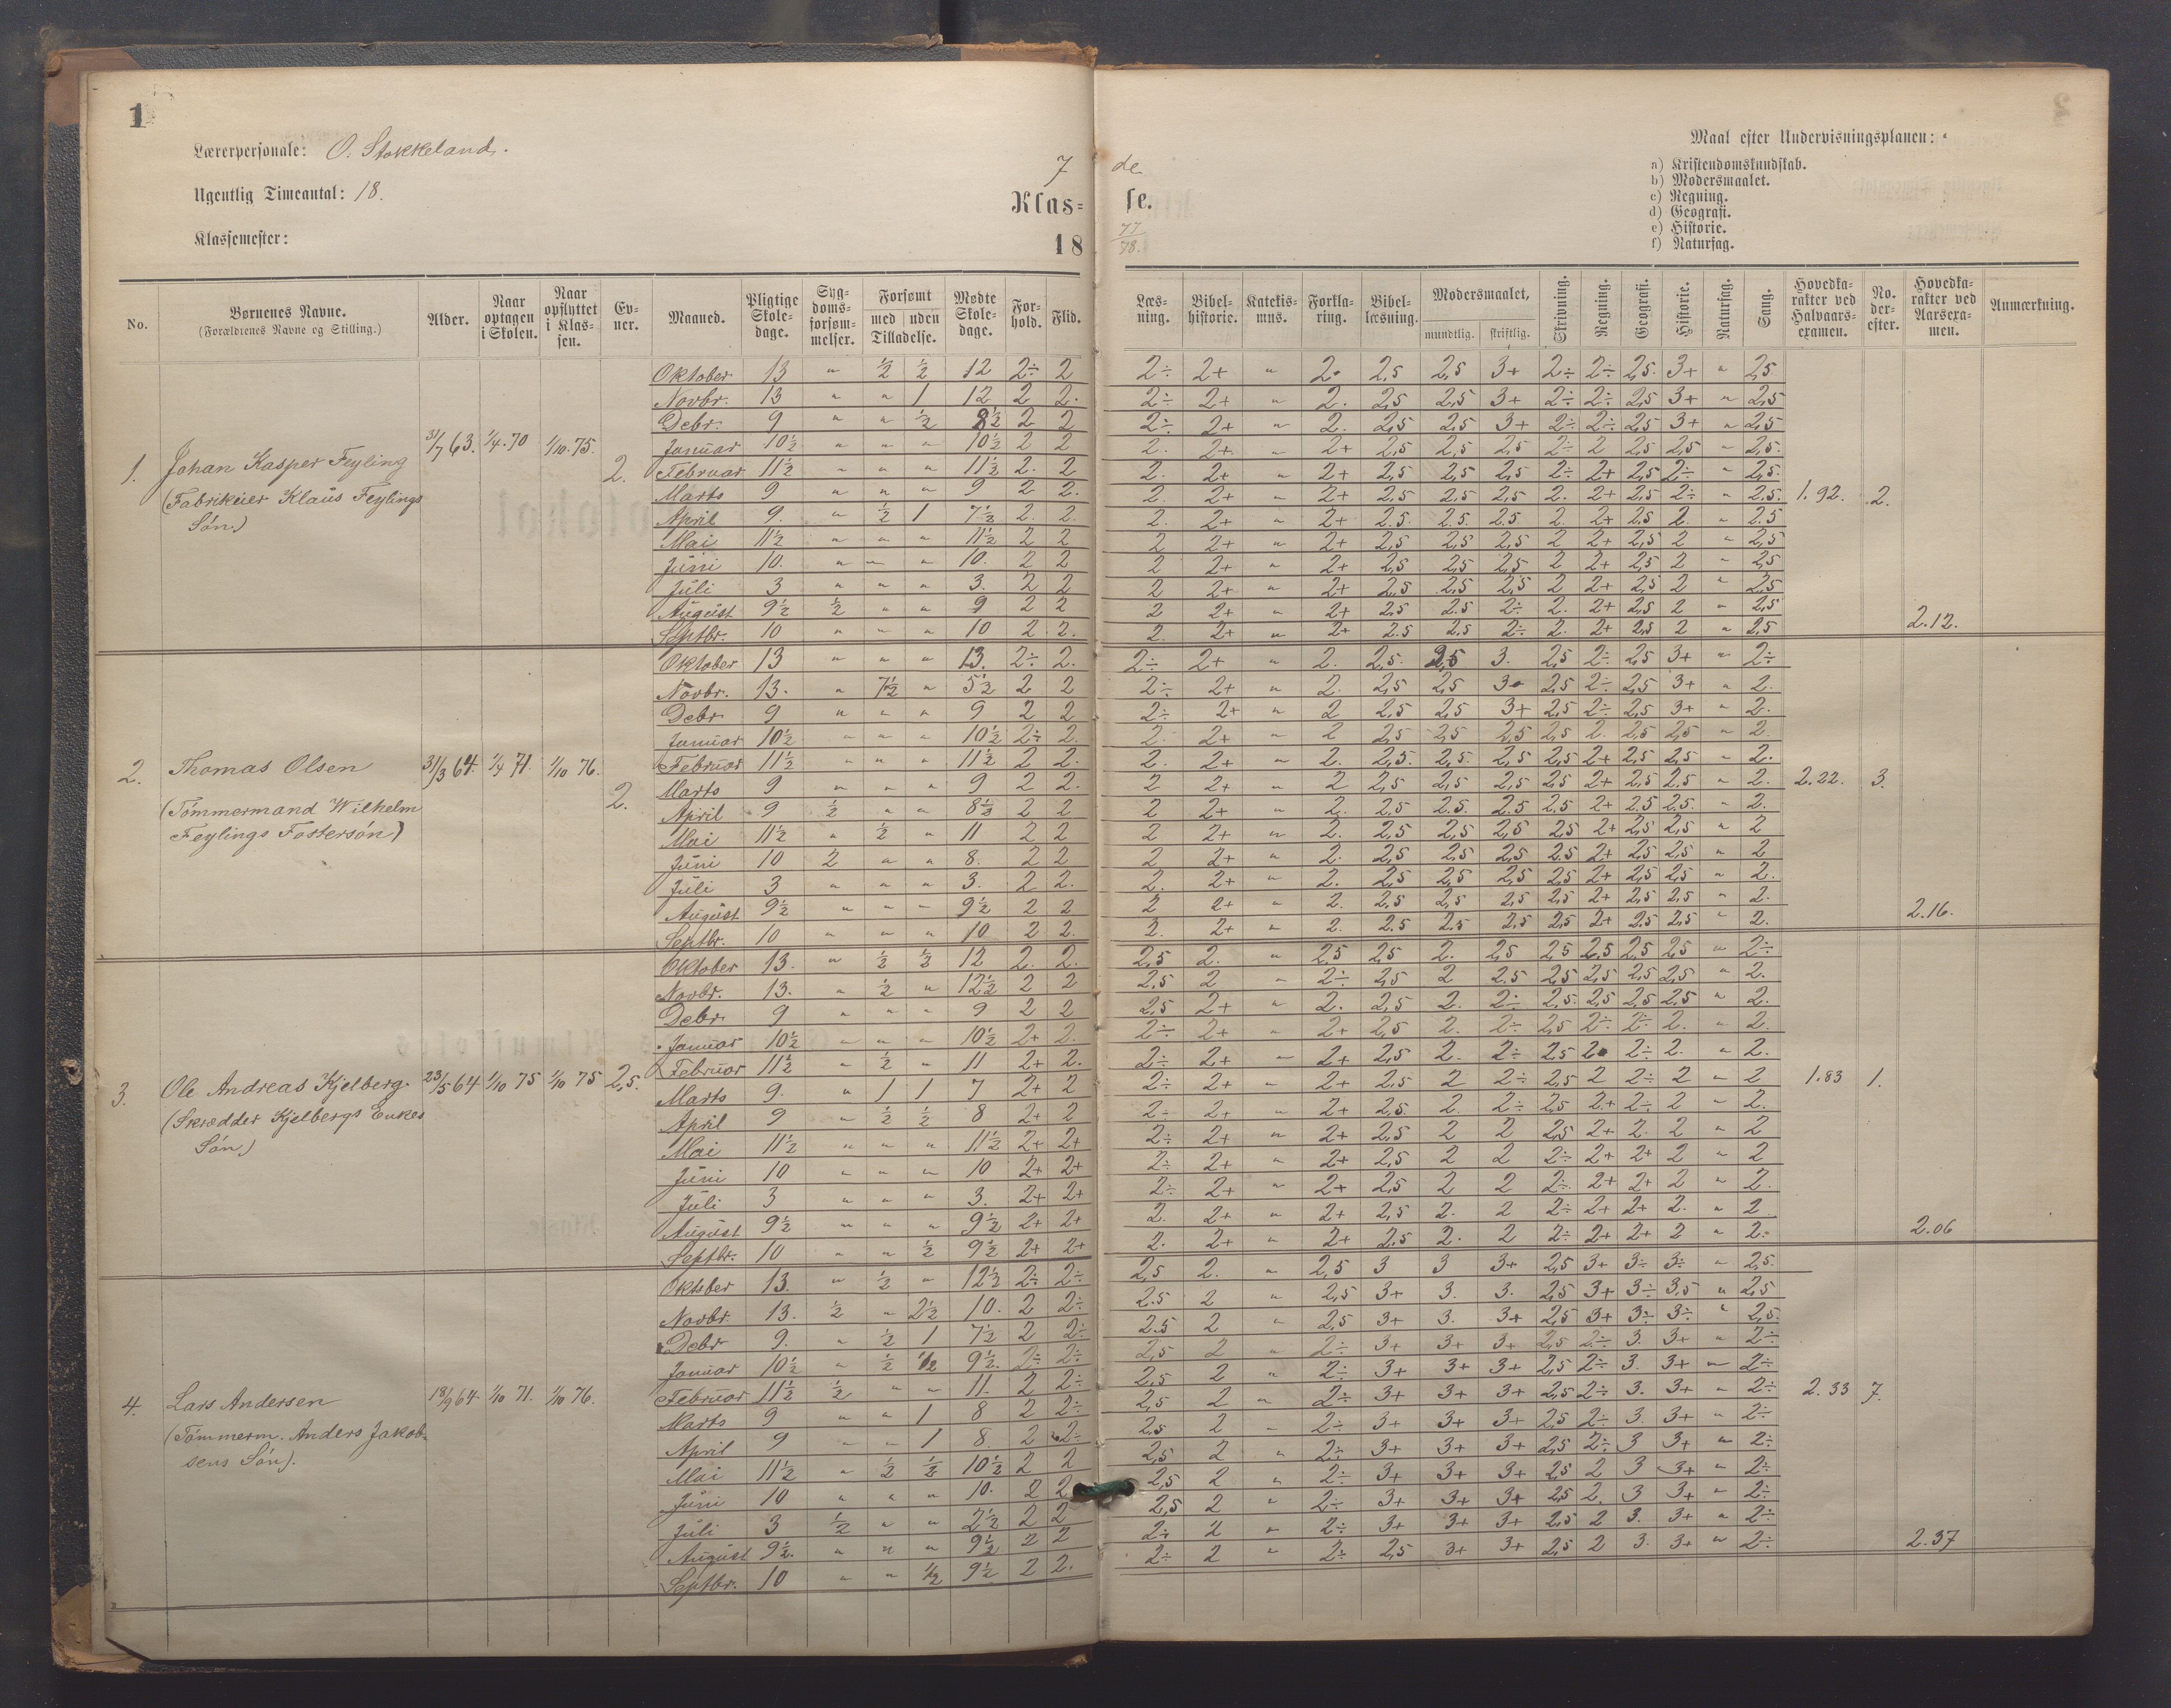 1
Lærerpersonale: O. Stokkeland.
Ugentlig Timeantal: 18.
Klassemester:
7 de
Klas= se.
18 77/78.
Maal efter Undervisningsplanen:
a) Kristendomskundskab.
b) Modersmaalet.
c) Regning.
d) Geografi.
e) Historie.
f) Naturfag.
No. Børnenes Navne. (Forældrenes Navne og Stilling.) Alder. Naar optagen i Skolen. Naar opflyttet i Klassen. Evner. Maaned. Pligtige Skoledage. Sygdomsforsømmelser. Forsømt med uden Tilladelse. Mødte Skoledage. Forhold. Flid. Læsning. Bibelhistorie. Katekismus. Forklaring. Bibellæsning. Modersmaalet, mundtlig. skriftlig. Skrivning. Regning. Geografi. Historie. Naturfag. Sang. Hovedkarakter ved Halvaarsexamen. No. derefter. Hovedkarakter ved Aarsexamen. Anmærkning.
1. Johan Kasper Feyling 31/7 63. 1/4. 70 1/10. 75. 2.
(Fabrikeier Klaus Feylings
Søn.)
Oktober 13 " ½ ½ 12 2÷ 2 2÷ 2+ " 2. 2,5 2,5 3+ 2÷ 2÷ 2,5. 3+ " 2,5
Novbr. 13 " " 1 12 2 2. 2÷ 2+ " 2. 2,5 2,5 3+ 2÷ 2÷ 2,5 3+ " 2,5
Debr. 9 " " ½ 8½ 2 2 2÷ 2+ " 2. 2,5 2,5 3+ 2÷ 2÷ 2,5 3+ " 2,5
Januar 10½ " " " 10½ 2 2 2. 2+ " 2+ 2,5 2,5 2,5 2÷ 2 2,5 2,5 " 2,5.
Februar 11½ " " " 11½ 2. 2 2. 2+ " 2+ 2,5 2,5 2,5 2÷ 2+ 2,5 2÷ " 2,5.
Marts 9 " " " 9 2 2. 2. 2+ " 2+ 2,5 2,5 2,5 2. 2+ 2,5 2÷ " 2,5. 1.92. 2.
April 9. " ½ 1 7½ 2. 2. 2. 2+ " 2+ 2.5. 2.5. 2.5 2. 2+ 2,5 2. " 2.5
Mai 11½ " " " 11½ 2 2 2 2+ " 2+ 2,5 2,5 2,5 2 2+ 2,5 2 " 2,5
Juni 10. " " " 10. 2 2 2 2+ " 2+ 2,5 2,5 2,5 2 2+ 2,5 2 " 2,5
Juli 3 " " " 3. 2 2 2 2+ " 2+ 2,5 2,5 2,5 2 2+ 2,5 2 " 2,5
August 9½ ½ " " 9 2 2 2 2+ " 2+ 2,5 2.5 2÷ 2. 2+ 2,5 2 " 2,5
Septbr. 10 " " " 10 2. 2. 2. 2+ " 2+ 2.5 2,5 2÷ 2. 2+ 2,5 2 " 2,5 2.12.
2. Thomas Olsen 31/3 64. 1/4 71. 1/10 76. 2.
(Tømmermand Wilhelm
Feylings Fostersøn)
Oktober 13 " " " 13. 2÷ 2. 2÷ 2+ " 2. 2,5. 2,5 3. 2,5 2÷ 2,5 3+ " 2÷
Novbr. 13. " 7½ " 5½ 2 2 2÷ 2+ " 2. 2,5 2,5 3 2,5 2÷ 2,5 3+ " 2.
Debr 9 " " " 9 2 2 2÷ 2+ " 2 2,5 2,5 3+ 2,5 2÷ 2,5 3+ " 2.
Januar 10½ " " " 10½ 2÷ 2. 2. 2+ " 2 2,5 2,5 2,5 2,5 2. 2,5 2,5 " 2.
Februar 11½ " " " 11½ 2 2. 2. 2+ " 2. 2,5. 2,5. 2,5 2,5 2+ 2,5 2,5. " 2.
Marts 9 " " " 9 2 2. 2 2+ " 2 2,5 2,5 2,5 2,5 2+ 2,5 2,5. " 2. 2.22. 3.
April 9 ½ " " 8½ 2 2 2 2+ " 2. 2,5 2.5. 2.5 2,5 2+ 2.5 2,5. " 2.
Mai 11½ " ½ " 11 2 2 2 2+ " 2. 2,5 2,5 2,5 2,5 2+ 2,5 2,5 " 2
Juni 10 2 " " 8. 2 2 2 2+ " 2. 2,5 2,5 2,5 2.5 2+ 2,5 2,5 " 2
Juli 3 " " " 3. 2 2. 2. 2+ " 2. 2,5 2,5 2,5 2,5 2+ 2,5 2,5 " 2.
August 9½ " " " 9½ 2 2 2 2+ " 2. 2,5 2,5 2,5 2,5 2+ 2,5 2,5 " 2.
Septbr. 10 " " " 10 2 2. 2. 2+ " 2. 2.5 2.5 2,5 2,5 2+ 2.5 2,5 " 2. 2.16.
3. Ole Andreas Kjelberg. 23/5 64 1/10 75 1/10 75 2,5.
(Skrædder Kjelbergs Enkes
Søn)
Oktober 13. " ½ ½ 12 2. 2. 2,5 2. " 2,5 2,5 2. 2,5 2,5 2,5 2,5 2,5 " 2÷
Novbr. 13. " ½ " 12½ 2 2 2,5 2 " 2÷ 2,5 2 2.5 2,5 2,5 2,5 2,5 " 2.
Debr 9 " " " 9 2 2 2,5 2+ " 2. 2,5 2. 2÷ 2,5. 2,5 2,5 2,5 " 2.
Januar 10½ " " " 10½ 2+ 2. 2÷ 2+ " 2+ 2,5 2. 2÷ 2,5 2÷ 2÷ 2. " 2.
Februar 11½ " ½ " 11 2+ 2. 2÷ 2+ " 2+ 2,5 2. 2÷ 2,5 2 2÷ 2. " 2.
Marts 9. " 1 1 7 2+ 2 2÷ 2+ " 2+ 2,5 2 2÷ 2,5 2 2÷ 2 " 2 1.83 1.
April 9 " ½ ½ 8 2+ 2 2÷ 2+ " 2+ 2,5. 2. 2÷ 2,5 2+ 2÷ 2 " 2.
Mai 11½ " " " 11½ 2+ 2+ 2÷ 2+ " 2+ 2,5 2 2 2,5 2+ 2. 2 " 2
Juni 10 " " " 10 2+ 2+ 2÷ 2+ " 2+ 2,5 2 2 2÷ 2+ 2+ 2 " 2
Juli 3 " " " 3. 2+ 2+ 2÷ 2+ " 2+ 2,5 2 2 2÷ 2+ 2+ 2 " 2.
August 9½ " " " 9½ 2+ 2+ 2. 2+ " 2+ 2,5 2. 2 2÷ 2+ 2+ 2. " 2
Septbr. 10 " " ½ 9½ 2+ 2+ 2. 2+ " 2+ 2.5 2. 2 2÷ 2+ 2+ 2 " 2. 2.06
4. Lars Andersen 18/9 64. 1/10 71. 1/10 76.
(Tømmerm. Anders Jakob=
sens Søn).
Oktober 13. " ½ " 12½ 2÷ 2÷ 2,5 2. " 2,5 3 3 3+ 2,5 3+ 3÷ 3÷ " 2,5.
Novbr. 13. ½ " 2½ 10. 2 2÷ 2.5 2 " 2,5 3+ 3. 3. 2,5 3+ 3÷ 3,5 " 2,5
Debr 9. " ½ 1 7½ 2 2÷ 2.5 2 " 2,5 3+ 3. 3+ 2,5 3+ 3÷ 3÷ " 2,5.
Januar 10½ " ½ ½ 9½. 2÷ 2÷ 2,5 2 " 2÷ 3+ 3+ 3+ 2,5 2÷ 3. 3+ " 2÷
Februar 11½ ½ " " 11. 2 2÷ 2,5 2 " 2÷ 3+ 3+ 3+ 2,5 2÷ 3. 3+ " 2÷
Marts 9 " " 1 8 2 2÷ 2,5 2 " 2÷ 3+ 3+ 3+ 2,5 2÷ 3. 3+ " 2÷ 2.33 7.
April 9 " " 1 8. 2 2÷ 2,5 2 " 2÷ 3+ 3+ 3+ 2,5 2÷ 3. 3+ " 2÷
Mai 11½ " ½ ½ 10½ 2 2 2,5 2 " 2÷ 3+ 3+ 3+ 2,5 2÷ 3 3+ " 2÷
Juni 10 " " " 10. 2 2 2,5 2 " 2÷ 3+ 3+ 3+ 2,5 2 3 3+ " 2÷
Juli 3 ½ " " 2½ 2 2 2,5 2 " 2÷ 3+ 3+ 3+ 2,5 2. 3 3+ " 2÷
August 9½. " " " 9½ 2 2 2÷ 2 " 2÷ 3+ 3+ 3+ 2,5 2 3. 3+ " 2÷
Septbr. 10 " " ½ 9½ 2 2. 2÷ 2 " 2÷ 2,5 3+ 3+ 2,5 2 3. 3+ " 2÷ 2.37